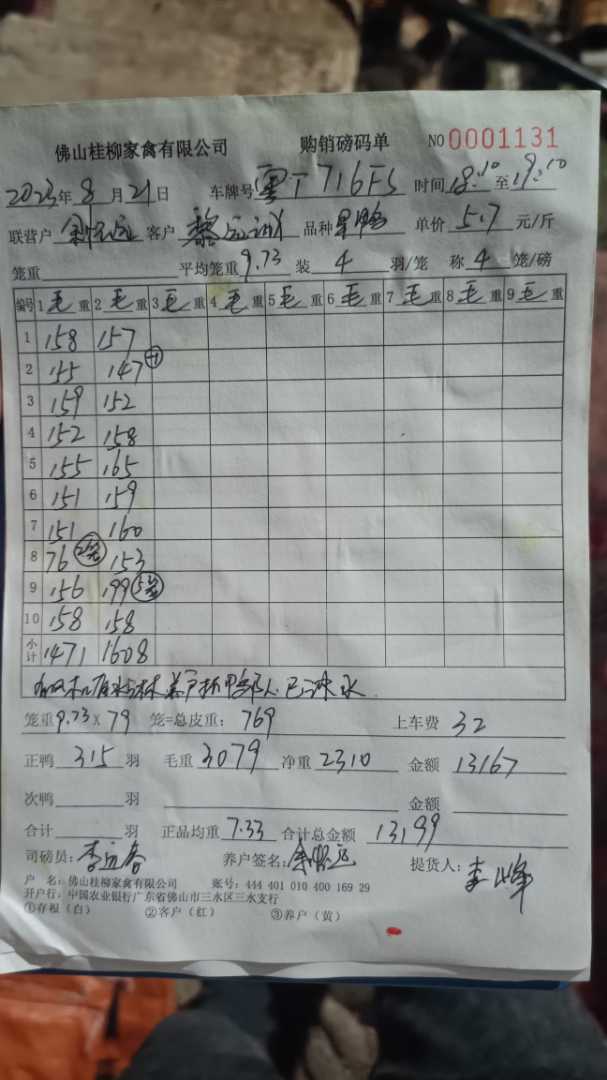 佛山桂柳家禽有限公司 购销磅码单 NO 0001131
2023年8月21日 车牌号 粤T716FS 时间18:10至19:10
联营户 客户 黎 品种 单价 5.7 元/斤
笼重 平均笼重 9.73 装 4 羽/笼 称 4 笼/磅
编号 1毛重 2毛重 3毛重 4毛重 5毛重 6毛重 7毛重 8毛重 9毛重
1 158 157
2 155 147
3 159 152
4 152 158
5 155 165
6 151 159
7 151 160
8 76 2笼 153
9 156 199 5笼
10 158 158
小计 1471 1608
笼重9.73×79 笼=总皮重:769 上车费 32
正鸭 315 羽 毛重 3079 净重 2310 金额 13167
次鸭 羽 金额
合计 羽 正品均重 7.33 合计总金额 13199
司磅员: 养户签名: 提货人:
户 名:佛山桂柳家禽有限公司 账号:444 401 010 400 169 29
开户行:中国农业银行广东省佛山市三水区三水支行
①存根(白) ②客户(红) ③养户(黄)